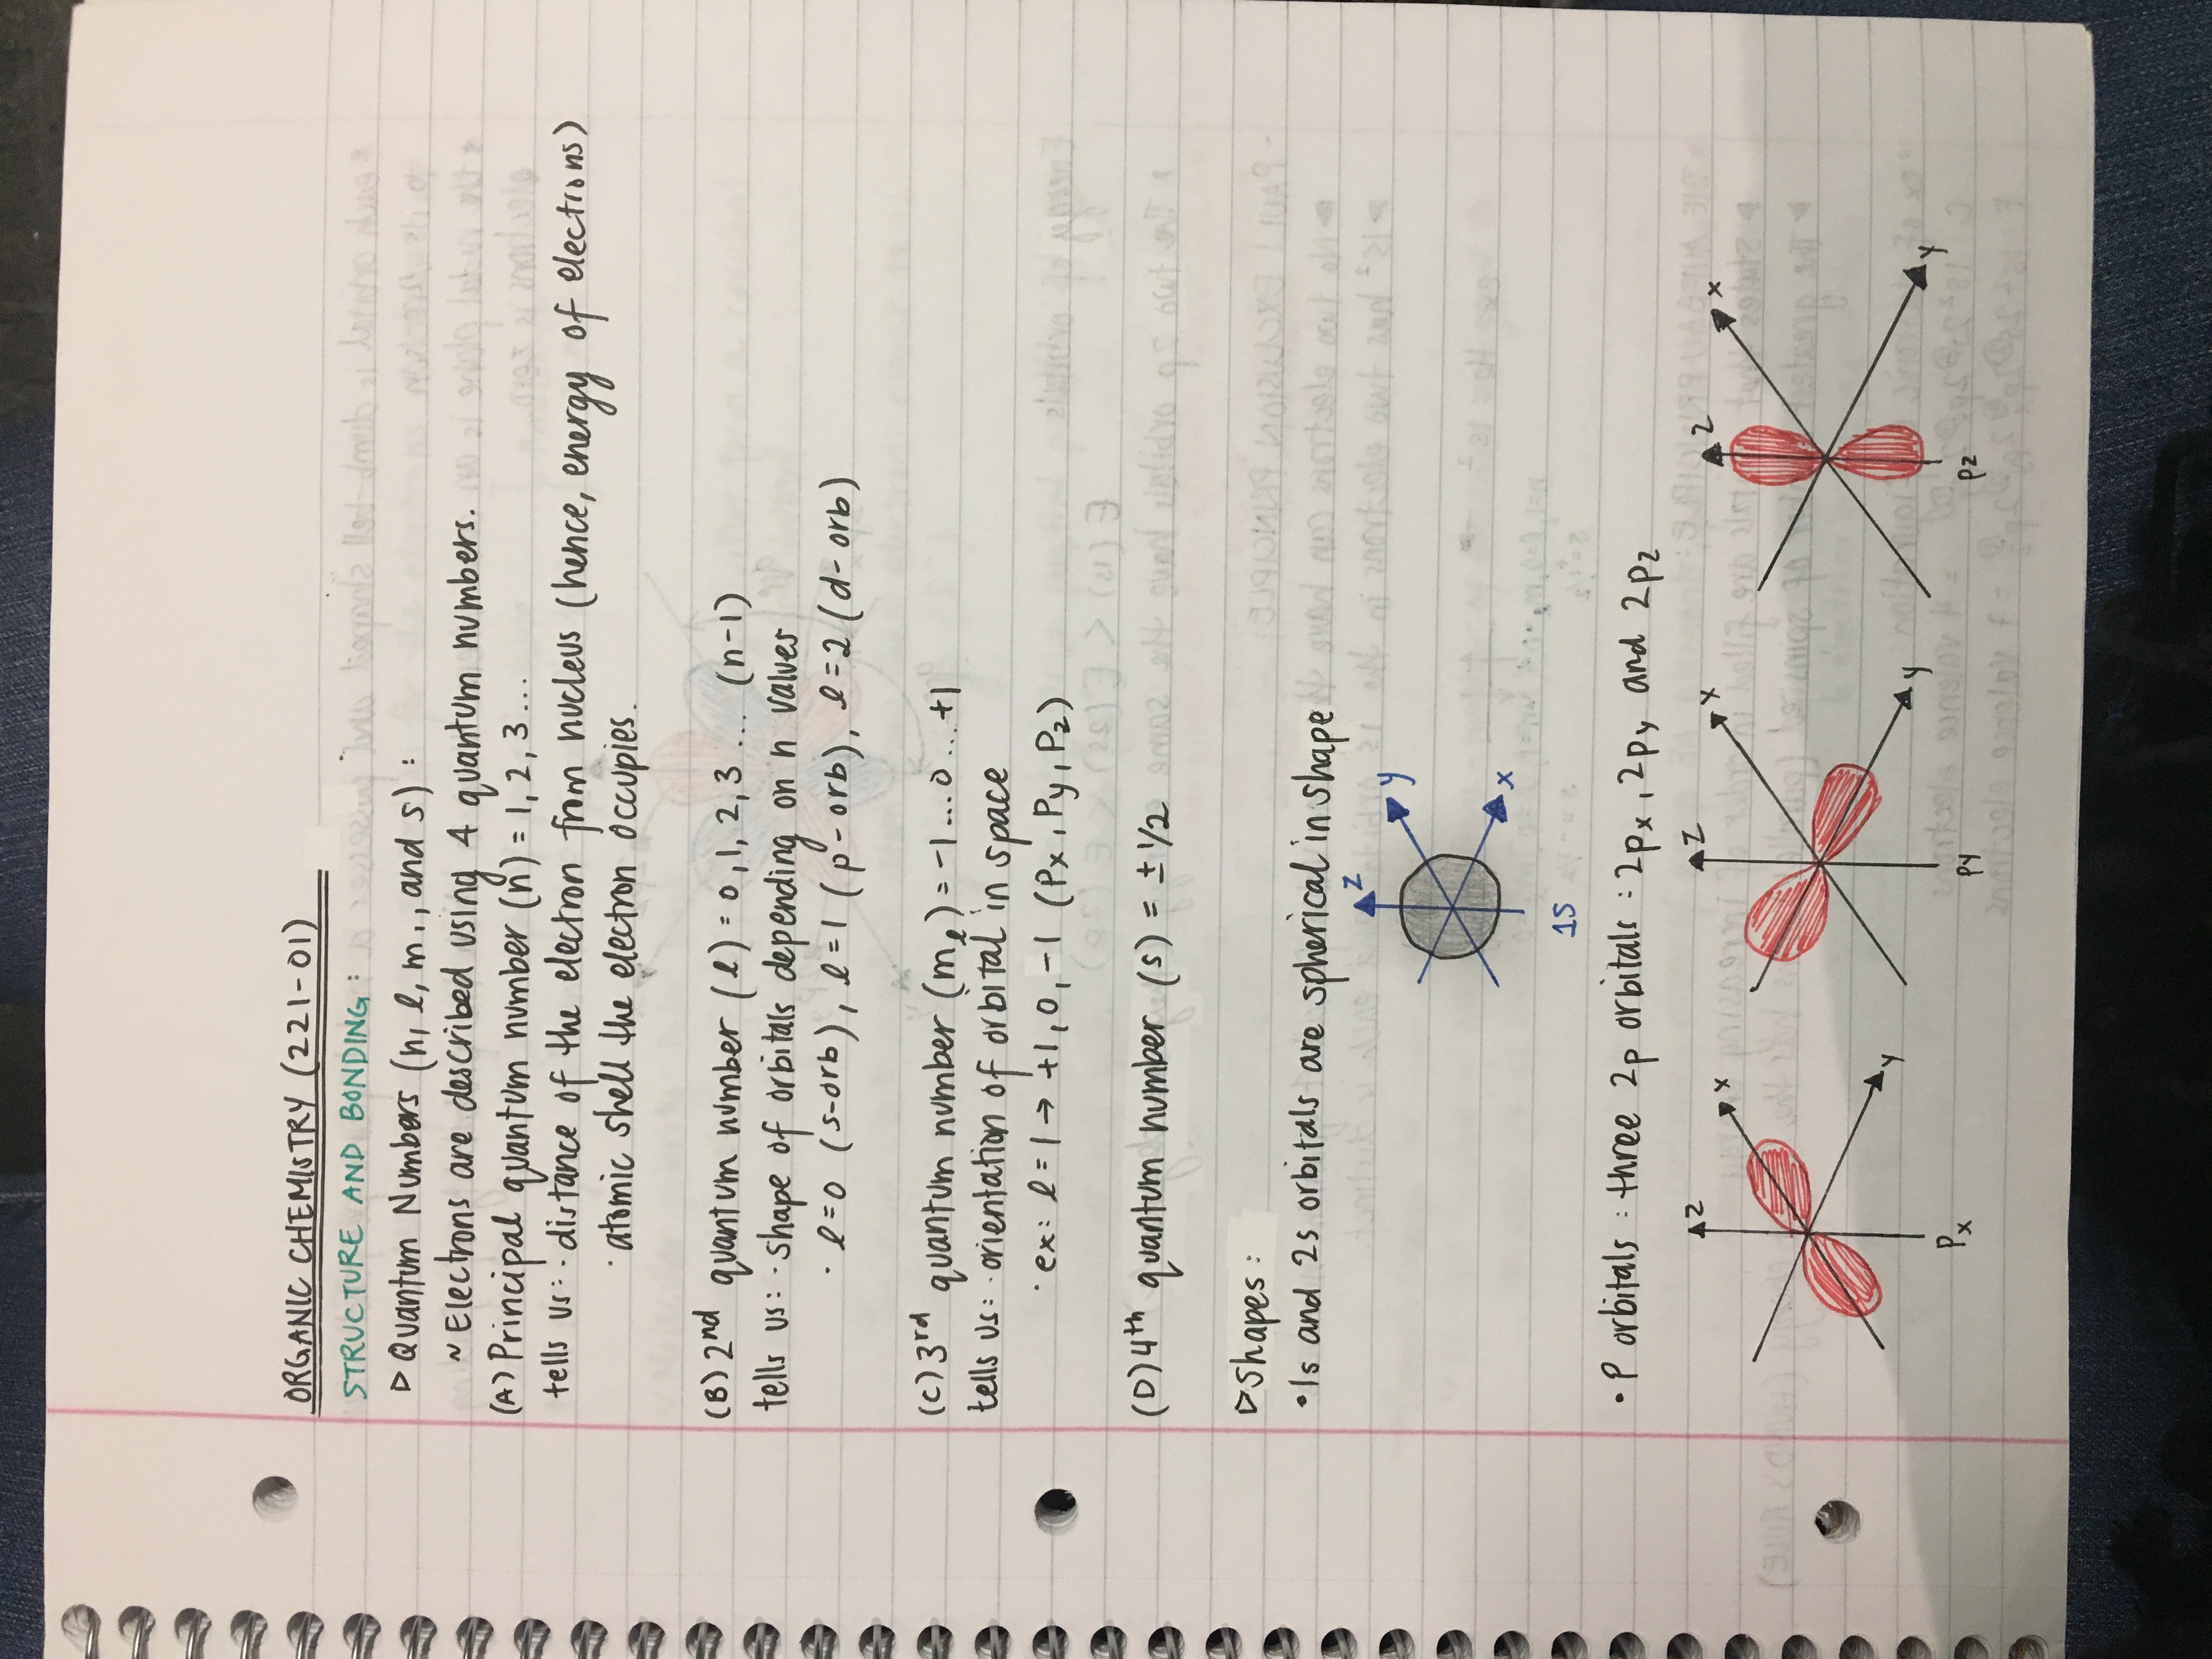 ORGANIC CHEMISTRY (221-01)
STRUCTURE AND BONDING:
▷ Quantum Numbers (n, l, m, and s):
~ Electrons are described using 4 quantum numbers.
(A) Principal quantum number (n) = 1, 2, 3...
tells us: · distance of the electron from nucleus (hence, energy of electrons)
· atomic shell the electron occupies.
(B) 2nd quantum number (l) = 0, 1, 2, 3 .... (n-1)
tells us: · shape of orbitals depending on n values
· l=0 (s-orb), l=1 (p-orb), l=2 (d-orb)
(C) 3rd quantum number (ml) = -1 .... 0 ... +1
tells us: · orientation of orbital in space
· ex: l=1 → +1, 0, -1 (Px, Py, Pz)
(D) 4th quantum number (s) = ± 1/2
▷ Shapes:
• 1s and 2s orbitals are spherical in shape
z y x
1S
• P orbitals: three 2p orbitals: 2px, 2py, and 2pz
z x y
z x y
z x y
Px Py Pz